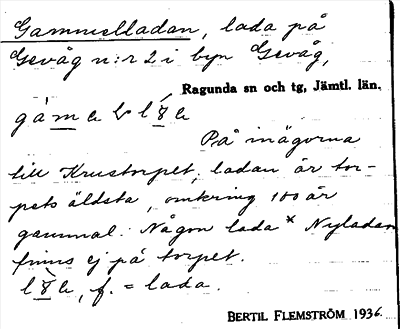 Gammelladan, lada på
Gevåg n:r 2 i byn Gevåg,
Ragunda sn och tg, Jämtl. län.
På inägorna
till Krustorpet, ladan är tor-
pets äldsta, omkring 100 år
gammal. Någon lada * Nyladan
finns ej på torpet.
f. = lada.
BERTIL FLEMSTRÖM 1936.